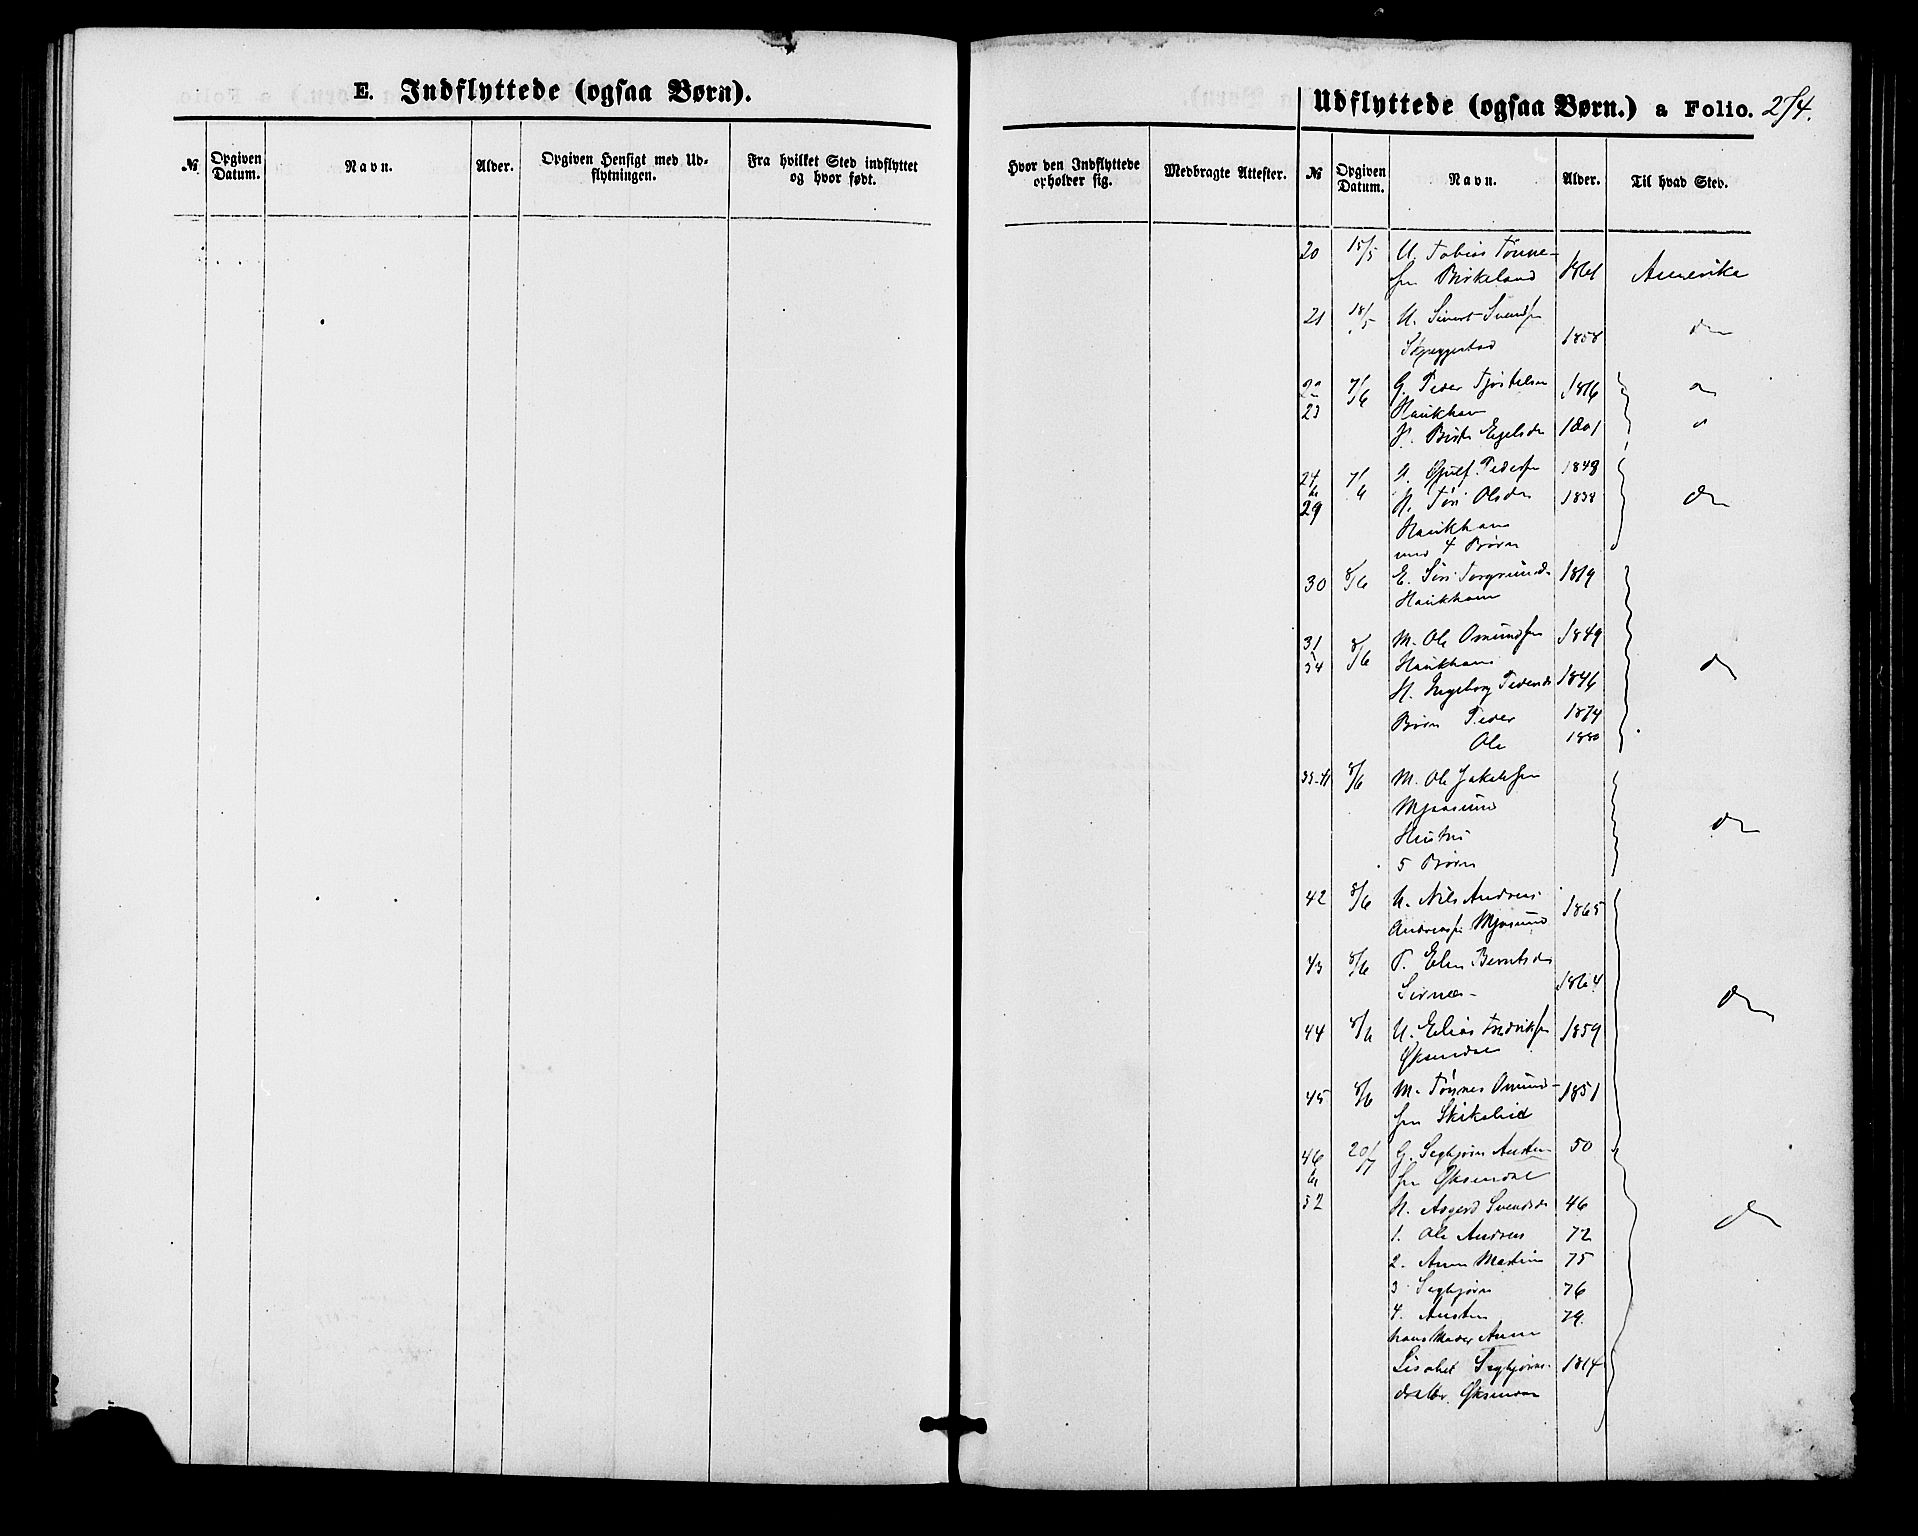 E. Indflyttede (ogsaa Børn).
№
Opgiven Datum.
Navn.
Alder.
Opgiven Hensigt med Ud-
flytningen.
Fra hvilket Sted indflyttet
og hvor født.
Hvor den Indflyttede
opholder sig.
Medbragte Attester.
Udflyttede (ogsaa Børn.) a Folio. 274.
№
Opgiven Datum.
Navn.
Alder.
Til hvad Sted.
20 15/5 U. Tobias Tønne-
sen Birkeland 1861 Amerika
21 18/5 U. Sivert Svends
1858 do
22 7/6 G. Peder 1816 do
23 Haukhom
H. Berte 1801
24 7/6 Peders 1848
til H. Tøri Olsdr 1838 do
29 Haukhom
med 4 Børn
30 8/6 E. Siri 1819
Haukhom
31 8/6 M. Ole Omundsen 1849
34 Haukhom do
H. Ingeborg Pedersd 1846
Børn Peder 1874
Ole 1880
35-41 8/6 M. Ole Jakobsen
Mjaasund do
Hustru
5 Børn
42 8/6 U. Nils Andreas 1865
Andreas Mjaasund
43 8/6 P. Elen Berntsdr
Sirnæs 1864 do
44 8/6 U. Elias Fredriksen 1859
Øksendal
45 8/6 M. Tønnes Omund- 1851
sen
46 20/7 G. Segbjørn Austen- 50
til sen Øksendal
52 H. Asgerd Svendsdr 46
1. Ole Andreas 72 do
2. Anne Martine 75
3 Segbjørn 76
4. Austen 79.
hans Moder Anne
Lisabet Segbjørns- 1814
datter Øksendal